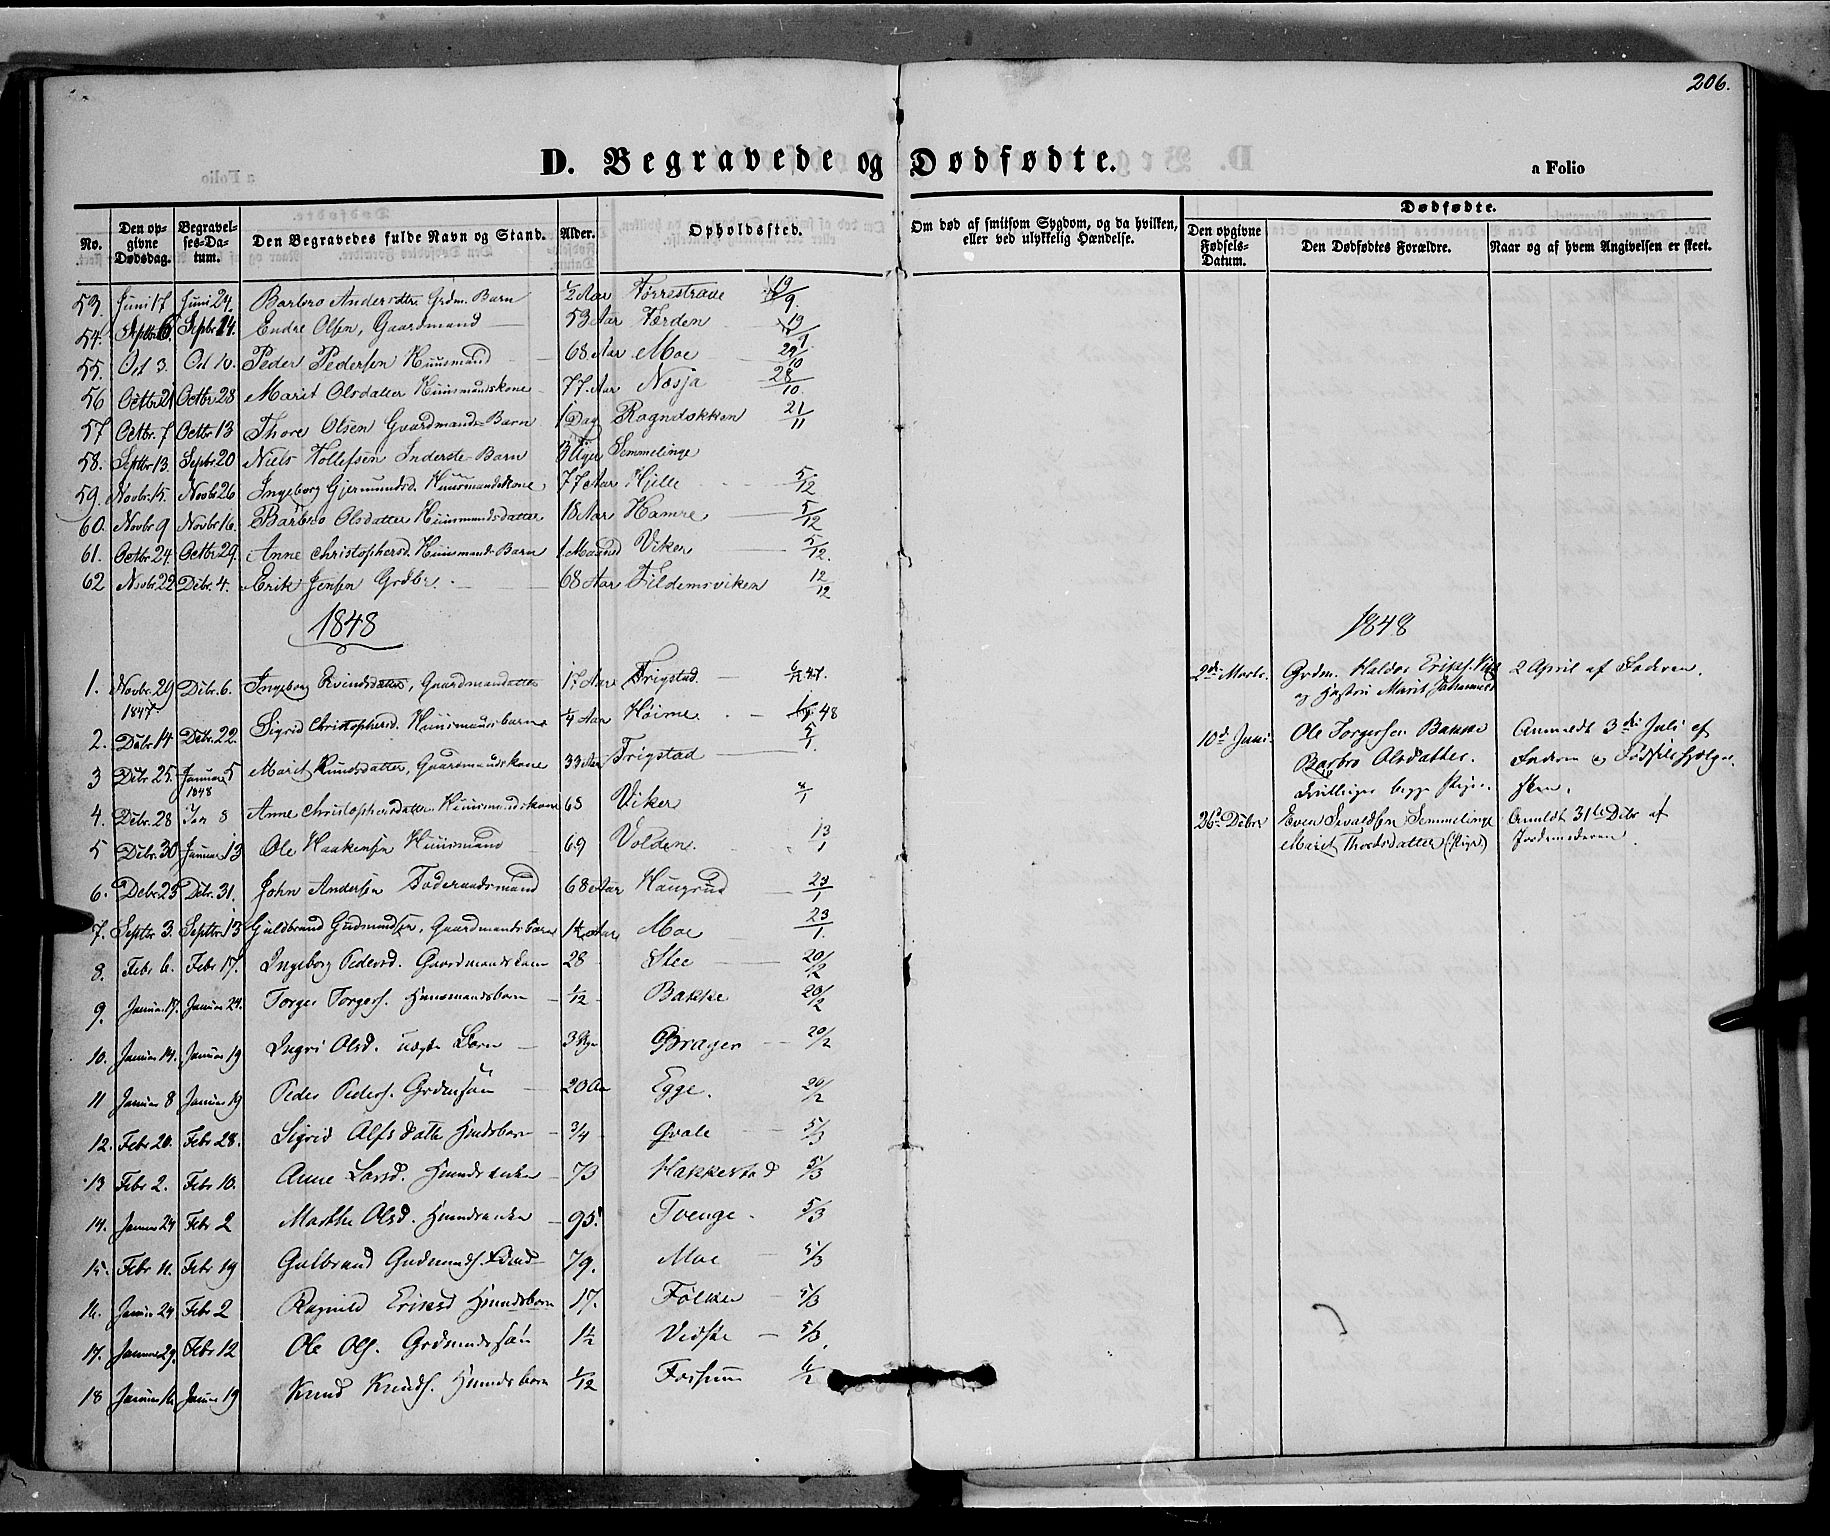 206.
D. Begravede og Dødfødte.
a Folio
No. Den opgivne Dødsdag. Begravelses-Datum. Den Begravedes fulde Navn og Stand. Alder. Opholdssted. Om død af smitsom Sygdom, og da hvilken, eller ved ulykkelig Hændelse.
Dødfødte.
Den opgivne Fødsels-Datum. Den Dødfødtes Forældre. Naar og af hvem Angivelsen er skeet.
53. Juni 17 Juni 24. Barbro Andersdtr. Grdm. Barn ½ Aar Torrestrade 19/9
54. Septbr 6. Sepbr 14. Endre Olsen, Gaardmand 53 Aar Værden
55. Oct 3. Oct 10. Peder Pedersen Huusmand 68 Aar Moe 29/10
56 Octbr 21 Octbr 28 Marit Olsdatter Huusmandskone 77 Aar Næsja 28/10
57 Octbr. 7 Octbr 13 Thore Olsen Gaardmands Barn 1 Dag Ragndokken 21/11
58. Septbr 13. Sepbr 20 Niels Tollefsen Inderste Barn 3 Uger Semmelinge
59. Novbr. 15. Novbr 26 Ingeborg Gjermundsd. Huusmandskone 77 Aar Hjelle 5/12
60. Novbr 9 Novbr 16. Barbro Olsdatter Huusmandsdatter 18 Aar Hamre 5/12
61. Octbr 24. Octbr 29. Anne Christophersd. Huusmands Barn 1 Maaned Viker 5/12.
62 Novbr 22 Debr. 4. Erik Jensen Grdbr. 68 Aar Tildemsviken 12/12
1848
1. Novbr. 29 1847. Debr. 6. Ingeborg Evindsdatter, Gaardmandatter 17 Aar Trigstad 47.
2. Debr 14 Debr. 22. Sigrid Christophersd. Huusmandsbarn ¼ Aar Høime. 48
3 Debr 25. Januar 5 1848 Marit Knudsdatter, Gaardmandskone 33 Aar Trigstad
4. Debr. 28 Jan 8 Anne Christophersdatter Huusmandskone 63 Viker
5 Debr. 30 Januar 13 Ole Haakensen Huusmand 69 Volden. 13/1
6. Debr 23 Debr. 31. John Andersen Føderaadsmand 68 Aar Haugrud 23/1
7. Septbr 3. Septbr 13 Guldbrand Gudmundsen, Gaardmands barn 1½ Aar Moe 23/1.
8. Febr 6. Febr 17. Ingeborg Pedersd. Gaardmands 28 Stee 20/2
9. Januar 17. Januar 24. Torger Torgers. Huusmandsbarn 1/12 Bakke 20/2
10. Januar 14. Januar 19 Ingri Olsd. uægte Barn 3 Uger Brager 20/2
11 Januar 8 Januar 19 Peder Peders. Grdmsøn 20 Aa Egge. 20/2
12. Febr 20. Febr 28. Sigrid Alfsdatter Hmdsbarn ¾ Qvale 5/3
13 Febr 2. Febr 10. Anne Larsd. Hmndsenke 73 Hakkestad 5/3
14. Januar 24 Febr 2 Marthe Olsd. Hmndsenke 95. Tvenge. 5/3
15. Febr 11. Febr 19 Gulbrand Gudmunds. 79. Moe 5/3
16. Januar 24 Febr 2 Ragnild Eriksd Hmndsbarn 17. Følken 5/3
17. Januar 29. Febr 12 Ole Ols. Grdmndssøn 1½ Vedste 5/3
18 Januar 14 Januar 19 Knud Knuds. Hmndsbarn 1/12 Fossum
1848
2den Marts. Grdm. Haldor Eriks. og Hustru Marit Johannesd 2 April af Faderen.
10de Juni Ole Torgersen Bakke Barbro Olsdatter. Tvillinger begge Piger. Anmeldt 3die Juli af Faderen og
26de Debr Even Sevaldsen Semmelinge Marit Thordsdatter (Pige) Anmeldt 31te Debr af Jordemoderen.